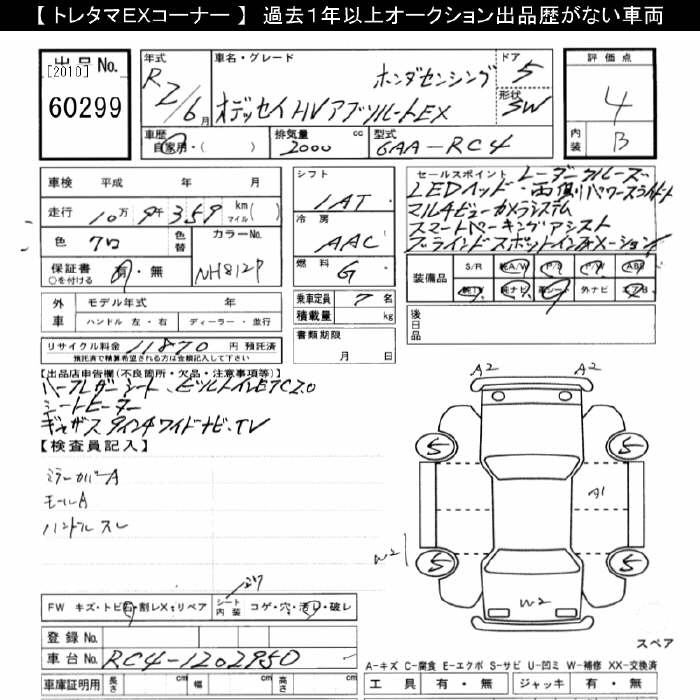 【 トレタマEXコーナー 】 過去１年以上オークション出品歴がない車両
出品No.
[2010]
60299
年式
R2/6月
車名・グレード
ホンダセンシング
オデッセイHVアブソルートEX
ドア
5
形状
SW
評価点
4
内装
B
車歴
自家用・( )
排気量
2000
cc
型式
6AA-RC4
車検 平成 年 月
走行 10万9千359 km マイル( )
色 クロ
色替
カラーNo.
NH812P
保証書
○を付ける
有・無
シフト
IAT
冷房
AAC
燃料
G
乗車定員 7 名
積載量 kg
書類期限
月 日
セールスポイント レーダークルーズ
LEDヘッド・両側パワースライドドア
マルチビューカメラシステム
スマートパーキングアシスト
ブラインドスポットインフォメーション
装備品
S/R 純A/W P/S P/W ABS
純TV 純ナビ 革シート 外ナビ エアB
後日品
外車
モデル年式 年
ハンドル 左・右 ディーラー・並行
リサイクル料金 11870 円 預託済
預託済で精算希望される方は金額記入して下さい
【出品店申告欄(不良箇所・欠品・注意事項等)】
ハーフレザーシート、ビルトインETC2.0
シートヒーター
ギャザズ9インチワイドナビ、TV
【検査員記入】
ミラーカバーA
モールA
ハンドルスレ
FW キズ・トビ石・割レX・リペア
シート内装
コゲ・穴・汚レ・破レ
登録No.
車台No. RC4-1202950
車庫証明用
長さ
cm
幅
cm
高さ
cm
A2 A2
5 5
A1
W2
5 5
W2
スペア
A-キズ C-腐食 E-エクボ S-サビ U-凹ミ W-補修 XX-交換済
工具 有・無 ジャッキ 有・無